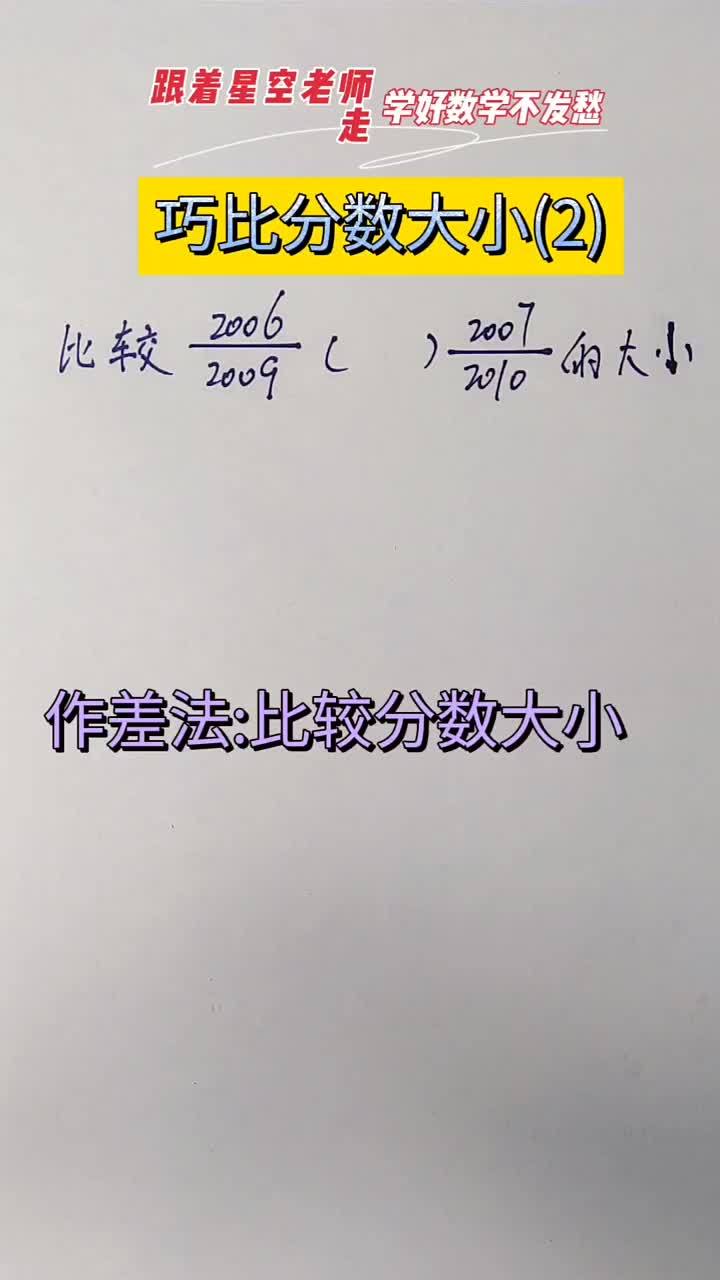 跟着星空老师走 学好数学不发愁
巧比分数大小(2)
比较 2006/2009 ( ) 2007/2010 的大小
作差法:比较分数大小